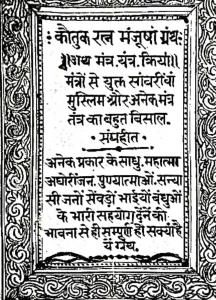 : कौतुक रत्न मंजूषा ग्रंथ:
मंत्र. यंत्र. क्रिया
मंत्रों से युक्त सांवरी वा
मुस्लिम और अनेक मंत्र
तंत्र का बहुत विसाल.
संग्रहीत
अनेक प्रकार के साधु. महात्मा
अघोरीजन. पुण्यात्माओं. सन्या
सी जनों सेवड़ों भाईयों बंधुओं
के भारी सहयोग देने की
भावना से ही सम्पूर्ण हो सक्या है
ये ग्रंथ.